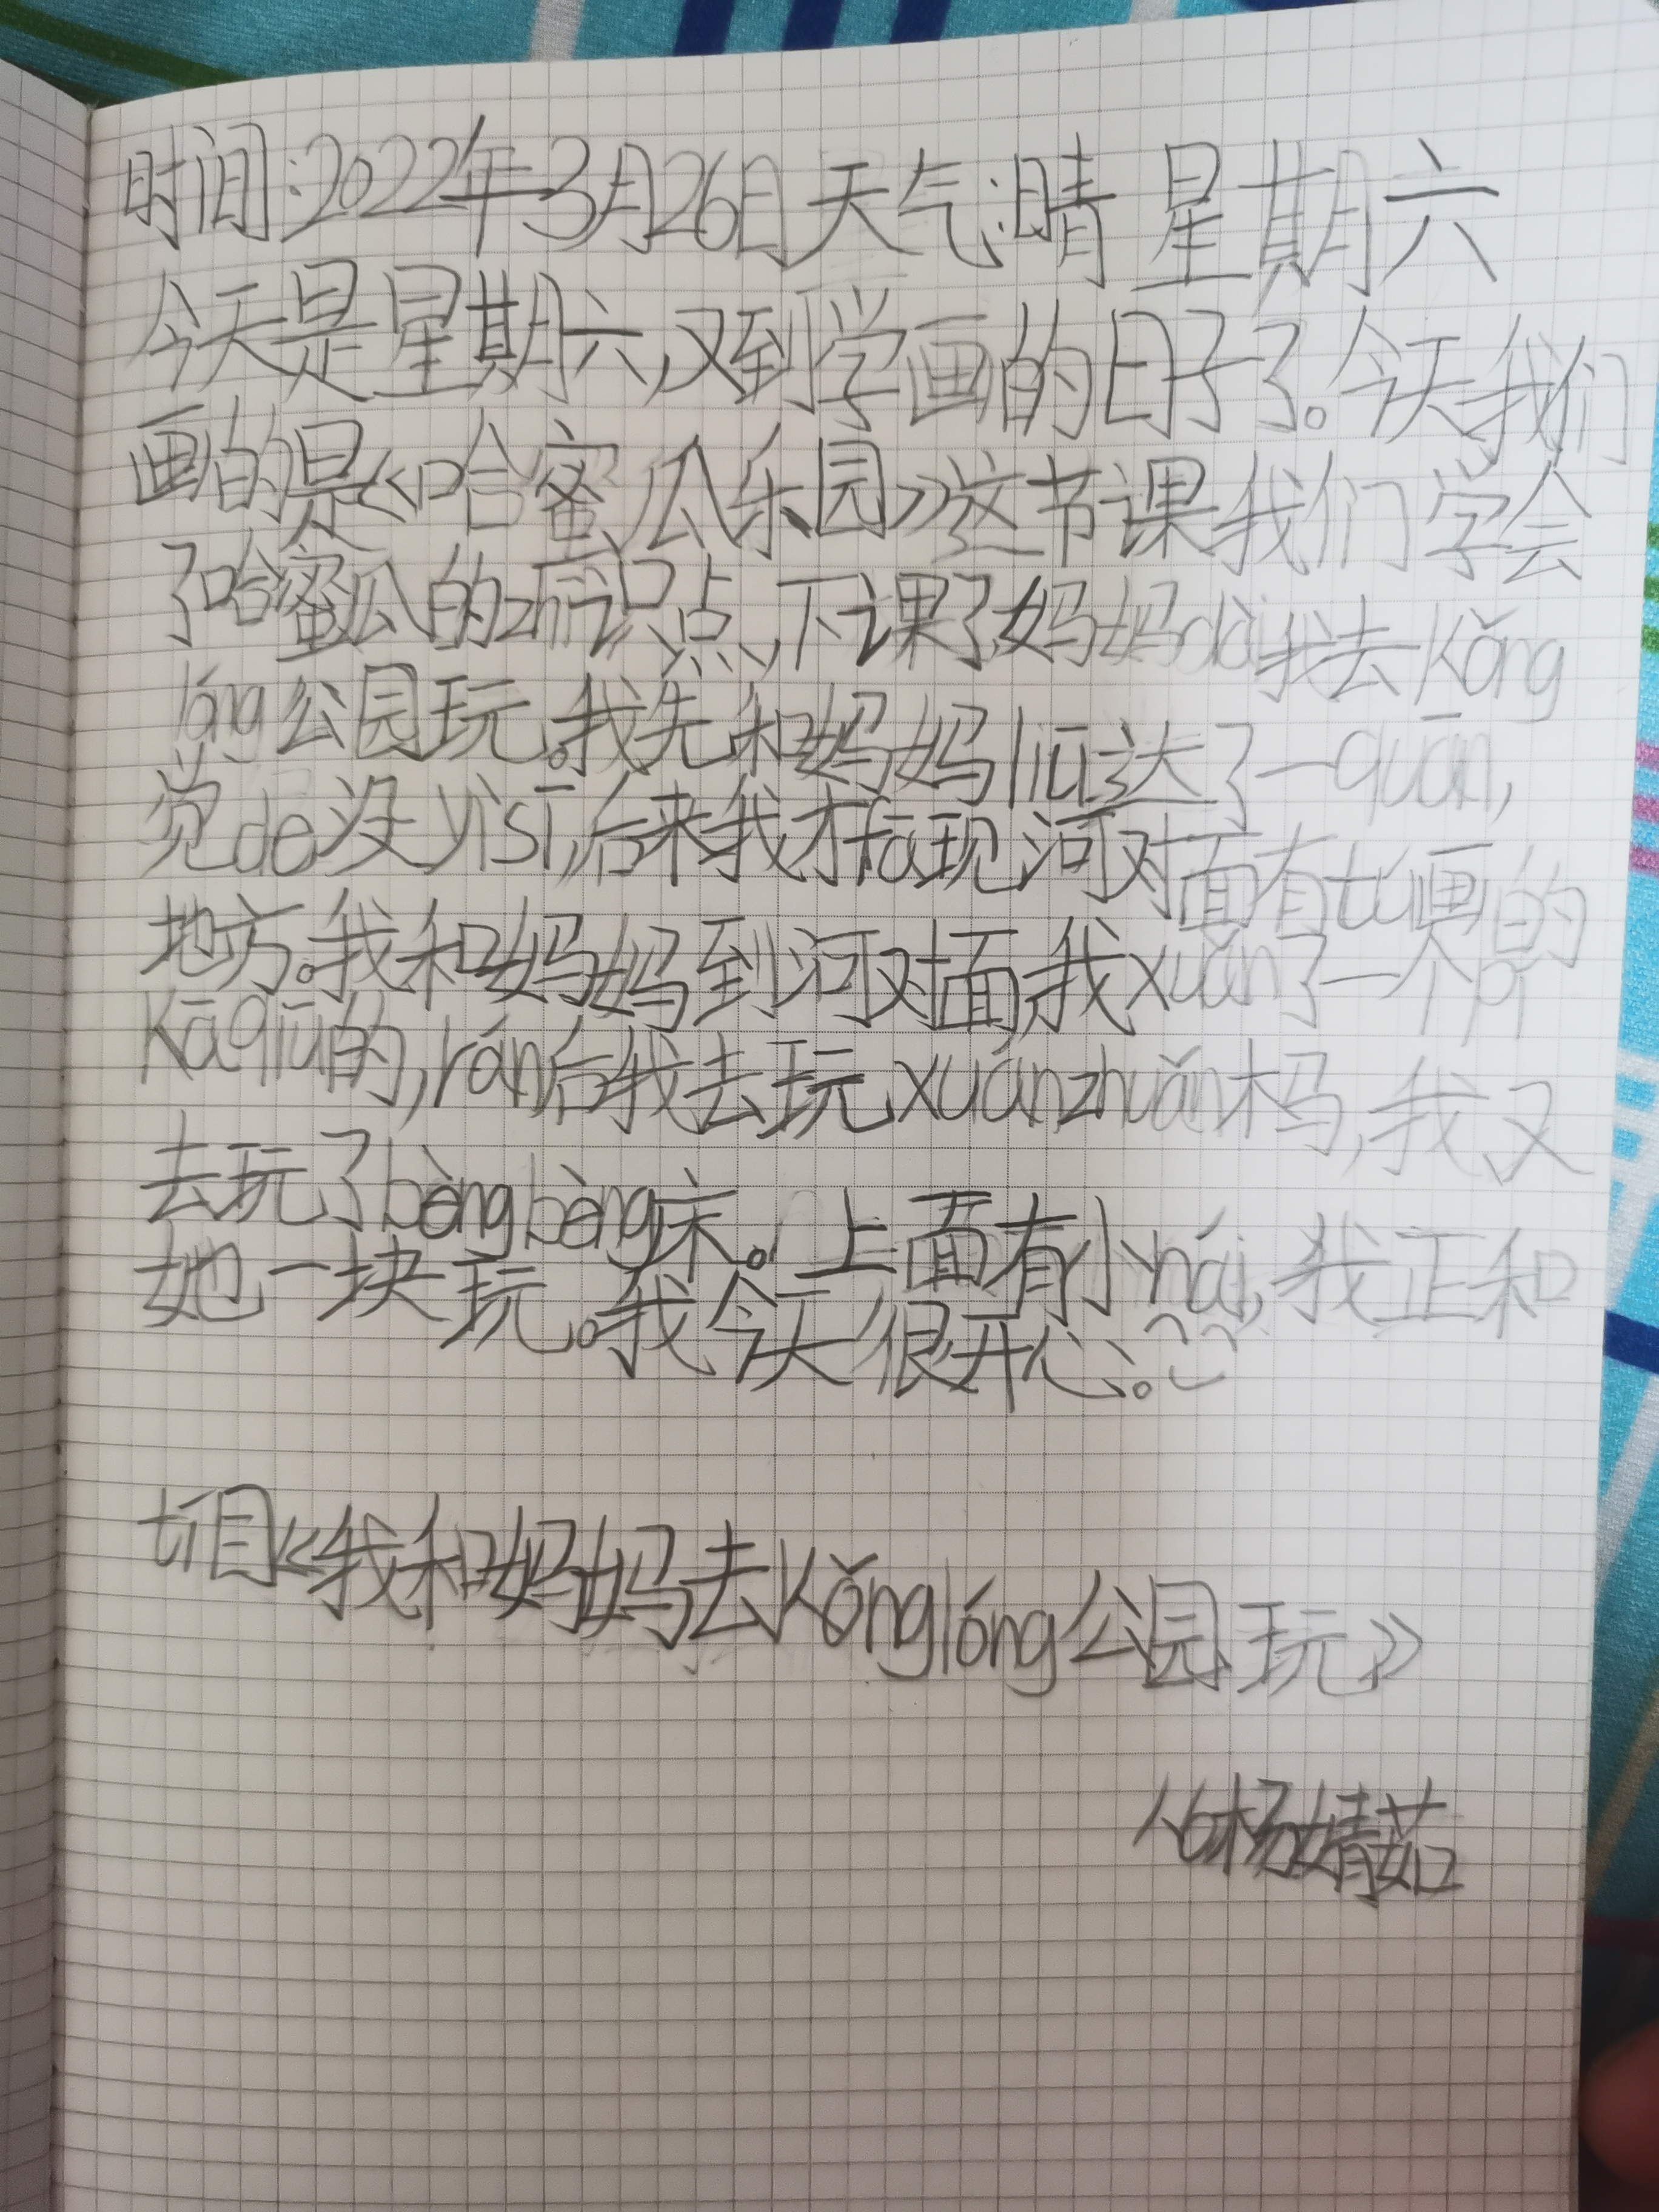 时间:2022年3月26日天气:晴 星期六
今天是星期六,又到学画的日子了。今天我们
画的是《哈蜜瓜乐园》这节课我们学会
了哈蜜瓜的zhī识点,下课了妈妈dài我去kǒng
lóng公园玩。我先和妈妈liū达了一quān,
觉de没yìsī,后来我才fā现河对面有tú画的
地方。我和妈妈到河对面,我xuǎn了一个pí
kāqiū的,rán后我去玩xuánzhuǎn木马,我又
去玩了bèngbèng床。上面有小hái,我正和
她一块玩。我今天很开心。
tí目《我和妈妈去kǒnglóng公园玩》
杨婧茹